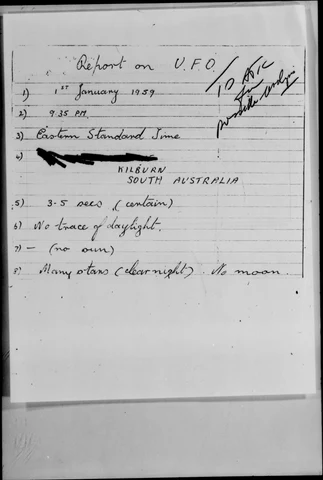 Report on U.F.O
TO
1) 1ST January 1959
2) 9.35 PM.
3) Eastern Standard Time
4)
KILBURN
SOUTH AUSTRALIA
5) 3-5 secs (certain)
6) No trace of daylight.
7) — (no sun)
8) Many stars (clear night). No moon.